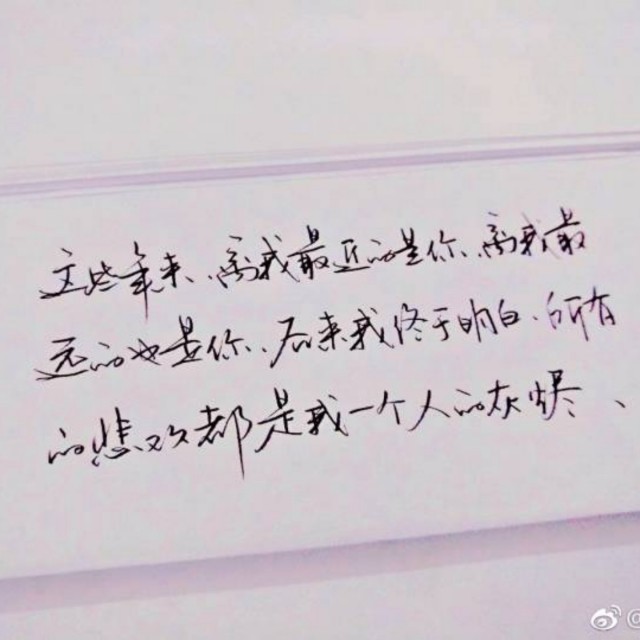 这些年来、离我最近的是你、离我最
远的也是你、后来我终于明白、所有
的悲欢都是我一个人的灰烬、
@